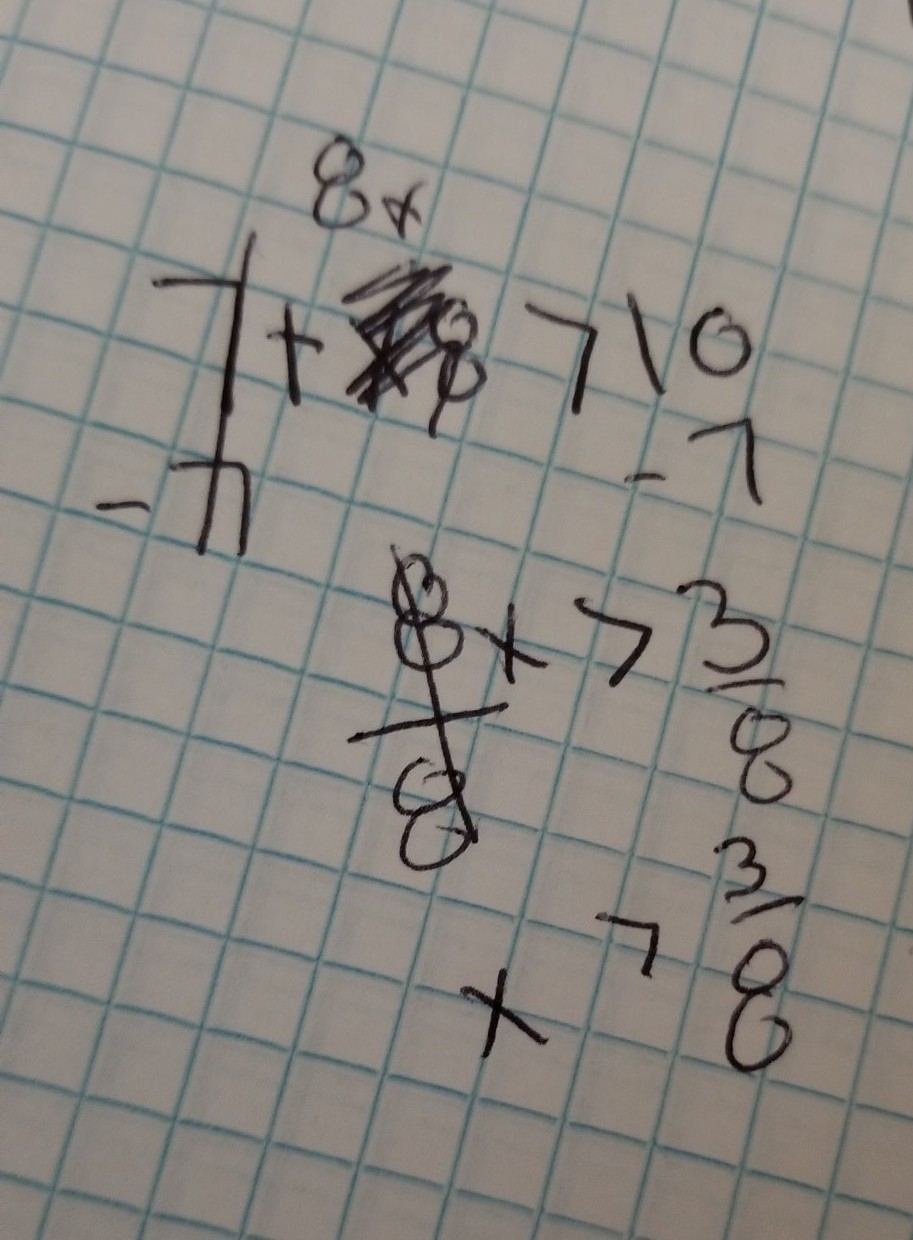 8x
7 + > 10
- 7 - 7
8x > 3
8 8
x > 3
8